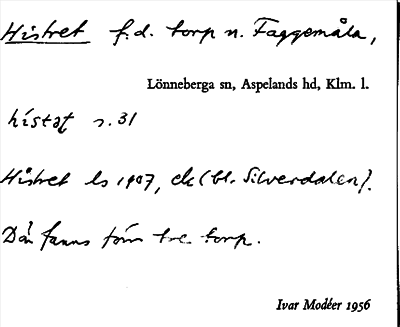 Histret f.d. torp n. Faggemåla,
Lönneberga sn, Aspelands hd, Klm. l.
s. 31
Histret ls 1907, ek (bl. Silverdalen).
Där fanns förr tre torp.
Ivar Modéer 1956